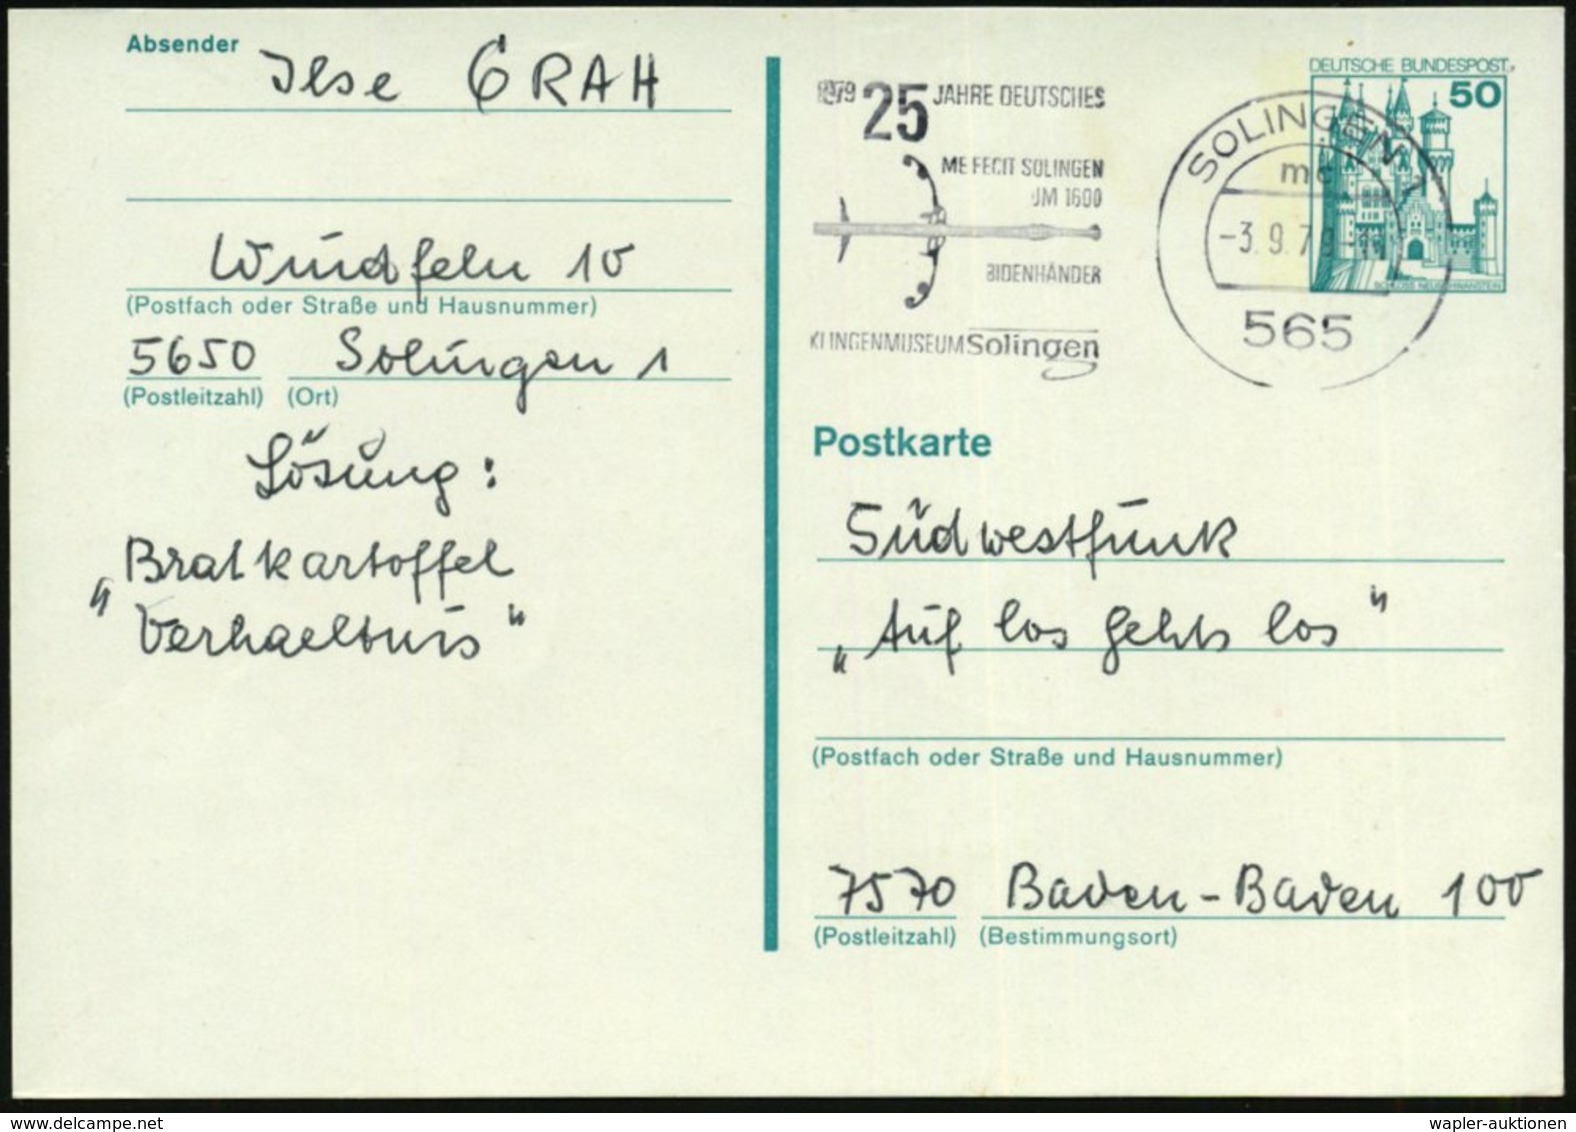 Absender
Ilse GRAH
Windfeln 10
(Postfach oder Straße und Hausnummer)
5650 Solingen 1
(Postleitzahl) (Ort)
Lösung:
„Bratkartoffel
Verhaeltnis“
1979 25 JAHRE DEUTSCHES
ME FECIT SOLINGEN
UM 1600
BIDENHÄNDER
KLINGENMUSEUM Solingen
SOLINGEN 1
mc
-3.9.79
565
DEUTSCHE BUNDESPOST
50
SCHLOSS NEUSCHWANSTEIN
Postkarte
Südwestfunk
„Auf los gehts los“
(Postfach oder Straße und Hausnummer)
7570 Baden-Baden 100
(Postleitzahl) (Bestimmungsort)
wapler-auktionen